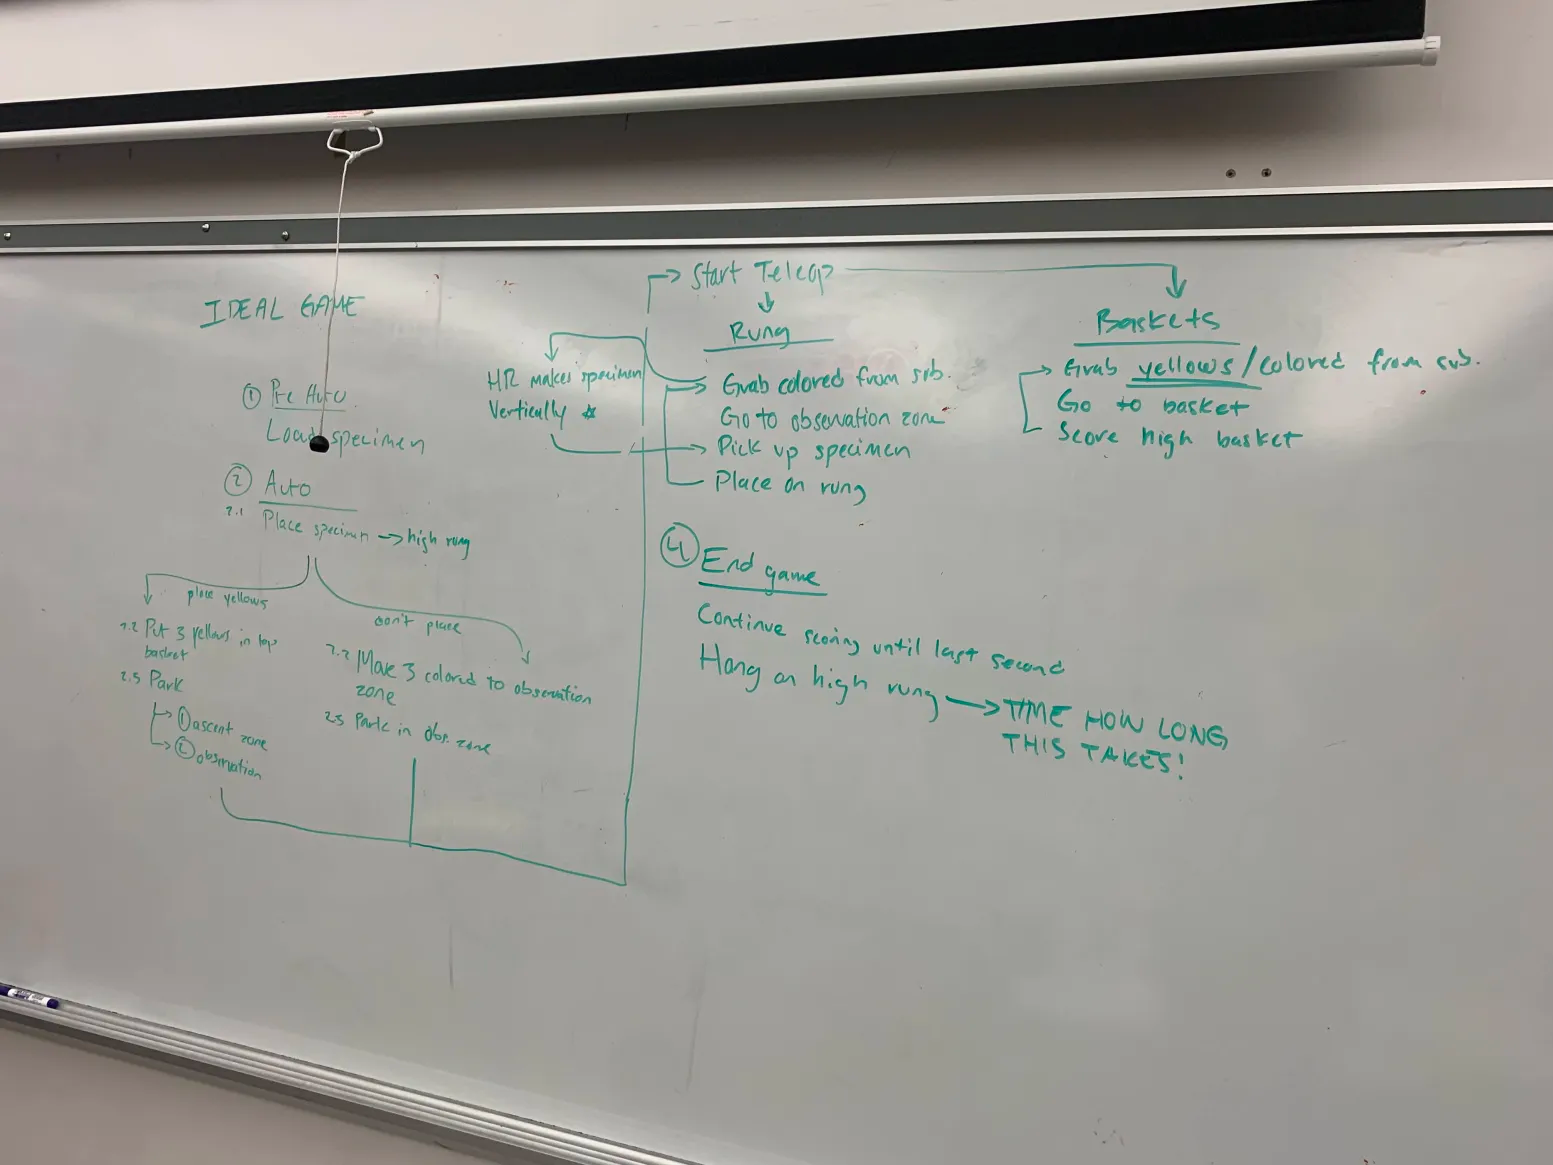 IDEAL GAME
① Pre Auto
Load specimen
② Auto
2.1 Place specimen → high rung
place yellows
don't place
2.2 Put 3 yellows in top
basket
2.3 Park
① ascent zone
② observation
2.2 Move 3 colored to observation
zone
2.3 Park in obs. zone
→ Start Teleop
Rung
Grab colored from sub.
Go to observation zone
Pick up specimen
Place on rung
HR makes specimen
Vertically ☆
Baskets
Grab yellows/colored from sub.
Go to basket
Score high basket
④ End game
Continue scoring until last second
Hang on high rung → TIME HOW LONG
THIS TAKES!